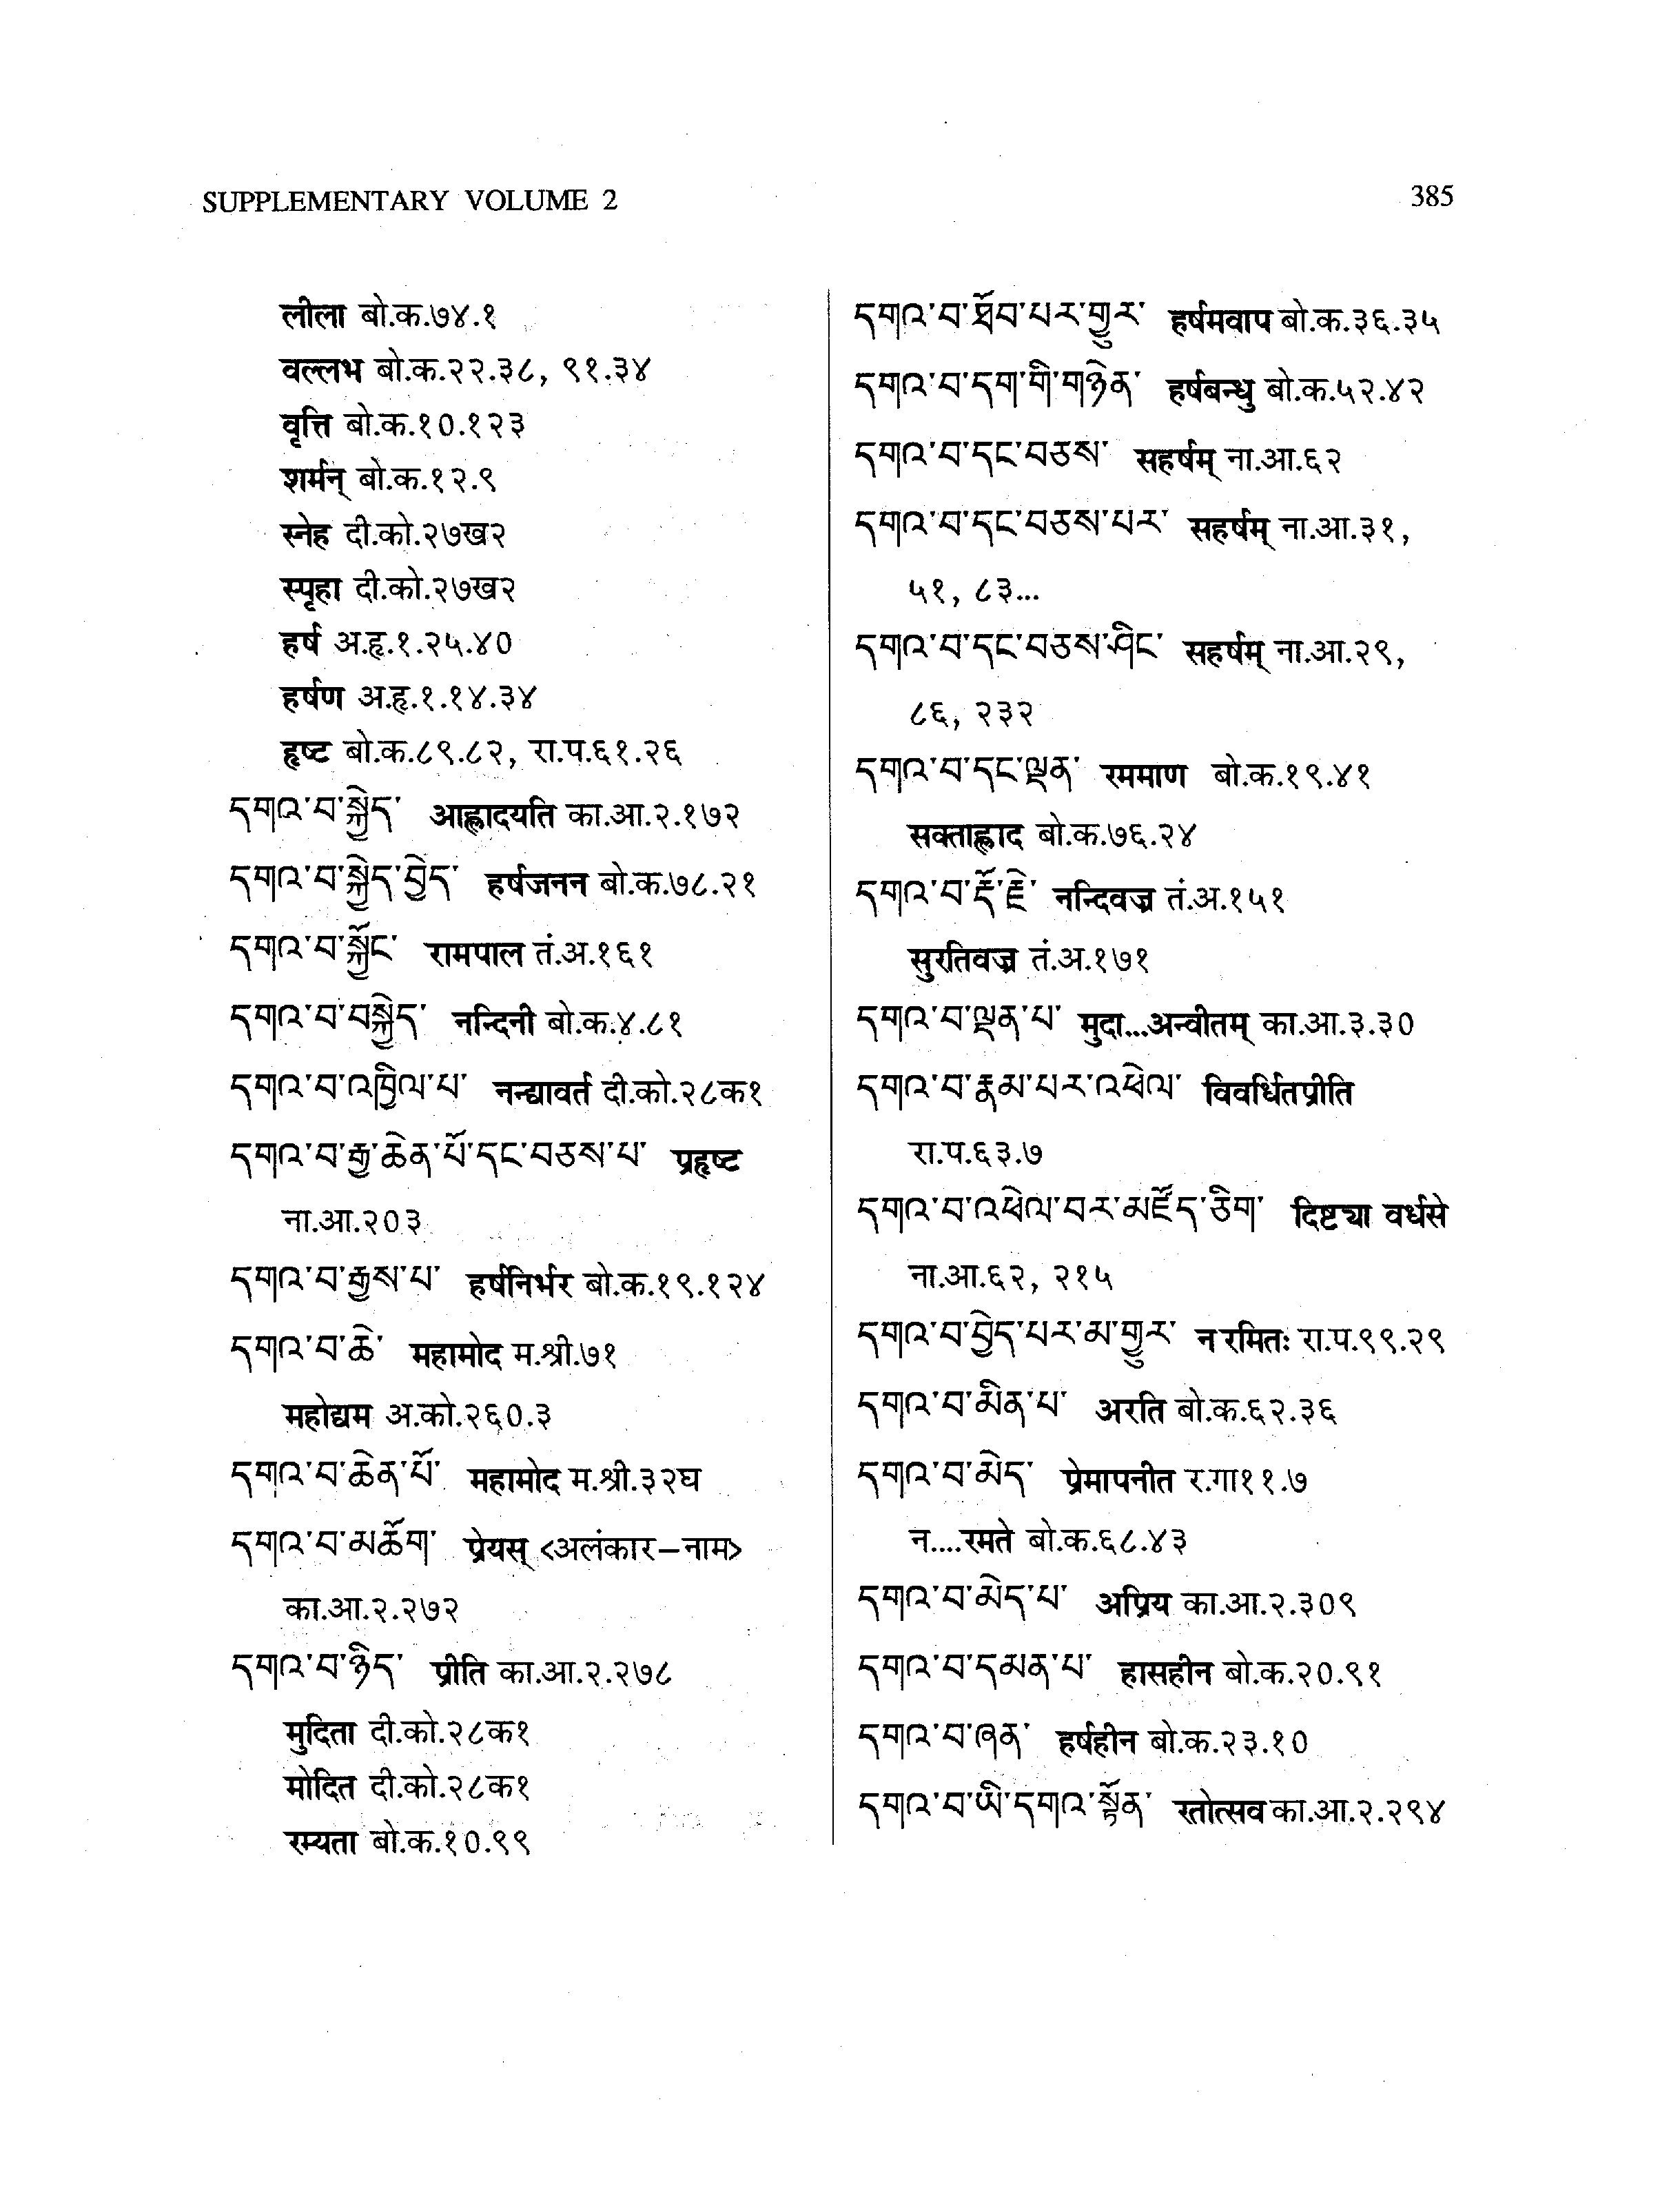 SUPPLEMENTARY VOLUME 2
385
लीला बो.क.७४.१
वल्लभ बो.क.२२.३८, ९१.३४
वृत्ति बो.क.१०.१२३
शर्मन् बो.क.१२.९
स्नेह दी.को.२७ख२
स्पृहा दी.को.२७ख२
हर्ष अ.हृ.१.२५.४०
हर्षण अ.हृ.१.१४.३४
हृष्ट बो.क.८९.८२, रा.प.६१.२६
དགའ་བ་སྐྱེད་ आह्लादयति का.आ.२.१७२
དགའ་བ་སྐྱེད་བྱེད་ हर्षजनन बो.क.७८.२१
དགའ་བ་སྐྱོང་ रामपाल तं.अ.१६१
དགའ་བ་བསྐྱེད་ नन्दिनी बो.क.४.८१
དགའ་བ་འཁྱིལ་པ་ नन्द्यावर्त दी.को.२८क१
དགའ་བ་རྒྱ་ཆེན་པོ་དང་བཅས་པ་ प्रहृष्ट
ना.आ.२०३
དགའ་བ་རྒྱས་པ་ हर्षनिर्भर बो.क.१९.१२४
དགའ་བ་ཆེ་ महामोद म.श्री.७१
महोद्यम अ.को.२६०.३
དགའ་བ་ཆེན་པོ་ महामोद म.श्री.३२घ
དགའ་བ་མཆོག་ प्रेयस् <अलंकार–नाम>
का.आ.२.२७२
དགའ་བ་ཉིད་ प्रीति का.आ.२.२७८
मुदिता दी.को.२८क१
मोदित दी.को.२८क१
रम्यता बो.क.१०.९९
དགའ་བ་ཐོབ་པར་གྱུར་ हर्षमवाप बो.क.३६.३५
དགའ་བ་དག་གི་གཉེན་ हर्षबन्धु बो.क.५२.४२
དགའ་བ་དང་བཅས་ सहर्षम् ना.आ.६२
དགའ་བ་དང་བཅས་པར་ सहर्षम् ना.आ.३१,
५१, ८३...
དགའ་བ་དང་བཅས་ཤིང་ सहर्षम् ना.आ.२९,
८६, २३२
དགའ་བ་དང་ལྡན་ रममाण बो.क.१९.४१
सक्ताह्लाद बो.क.७६.२४
དགའ་བ་རྡོ་རྗེ་ नन्दिवज्र तं.अ.१५१
सुरतिवज्र तं.अ.१७१
དགའ་བ་ལྡན་པ་ मुदा...अन्वीतम् का.आ.३.३०
དགའ་བ་རྣམ་པར་འཕེལ་ विवर्धितप्रीति
रा.प.६३.७
དགའ་བ་འཕེལ་བར་མཛོད་ཅིག་ दिष्ट्या वर्धसे
ना.आ.६२, २१५
དགའ་བ་བྱེད་པར་མ་གྱུར་ न रमितः रा.प.९९.२९
དགའ་བ་མིན་པ་ अरति बो.क.६२.३६
དགའ་བ་མེད་ प्रेमापनीत र.गा११.७
न....रमते बो.क.६८.४३
དགའ་བ་མེད་པ་ अप्रिय का.आ.२.३०९
དགའ་བ་དམན་པ་ हासहीन बो.क.२०.९१
དགའ་བ་ཞན་ हर्षहीन बो.क.२३.१०
དགའ་བ་ཡི་དགའ་སྟོན་ रतोत्सव का.आ.२.२९४